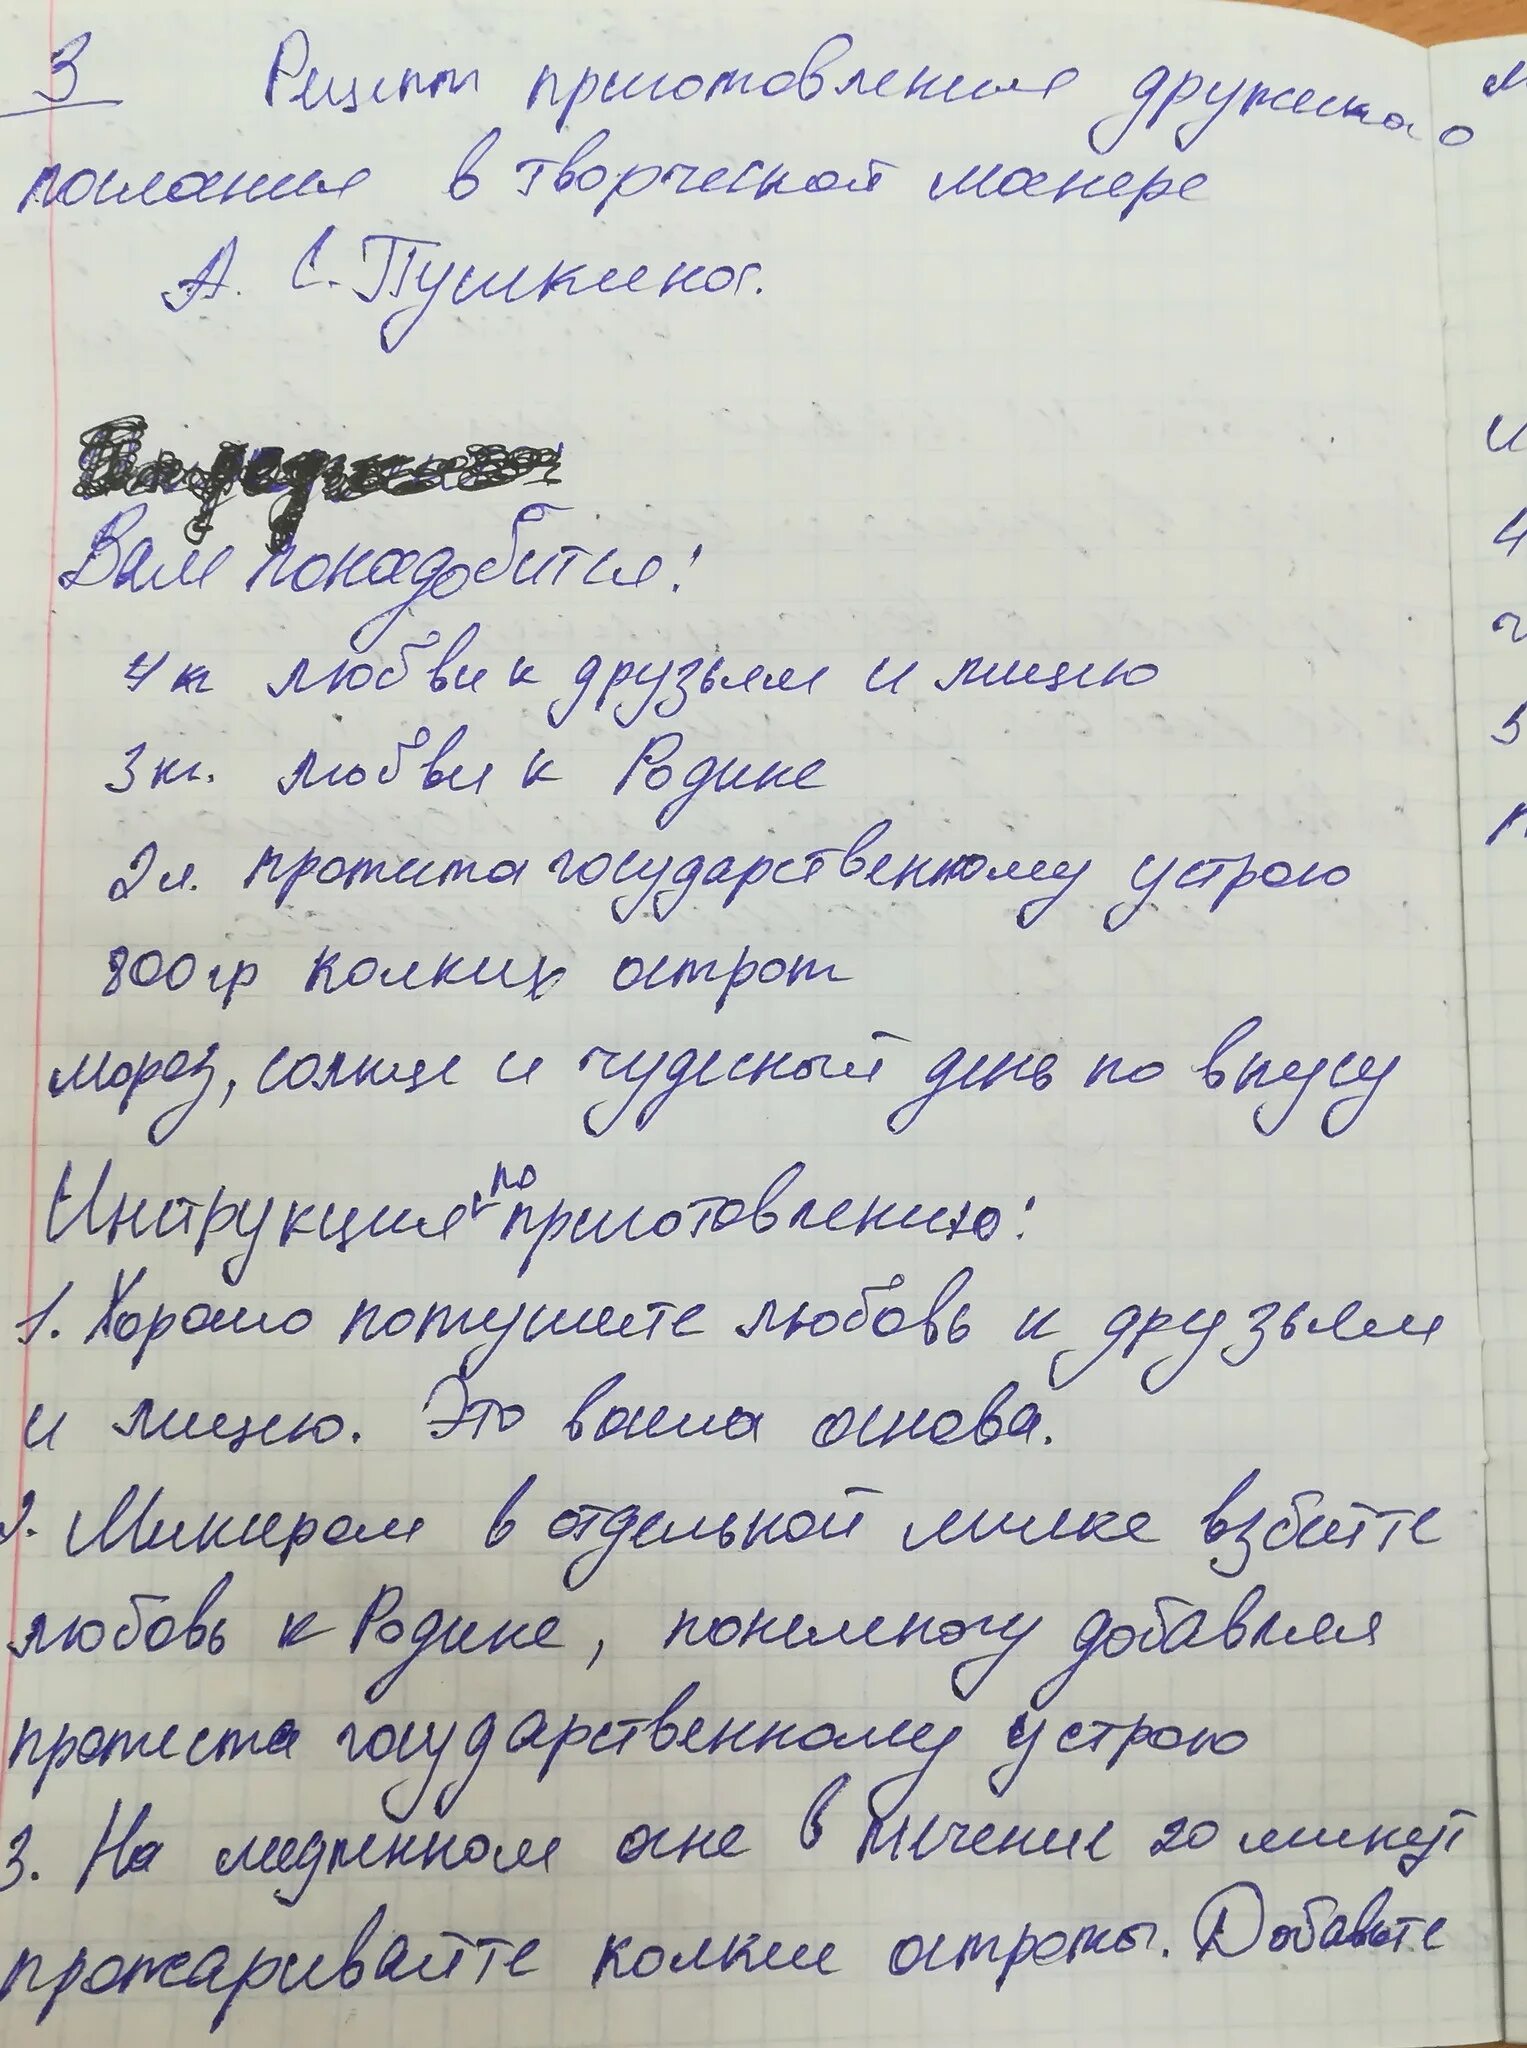 3 Рецепт приготовления дружеского
послания в творческой манере
А. С. Пушкина.
Вам понадобится:
4 кг любви к друзьям и лицею
3 кг. любви к Родине
2 л. протеста государственному устрою
800 гр колких острот
мороз, солнце и чудесный день по вкусу
Инструкция по приготовлению:
1. Хорошо потушите любовь к друзьям
и лицею. Это ваша основа.
2. Миксером в отдельной миске взбейте
любовь к Родине, понемногу добавляя
протеста государственному устрою
3. На медленном огне в течение 20 минут
прожаривайте колкие остроты. Добавьте